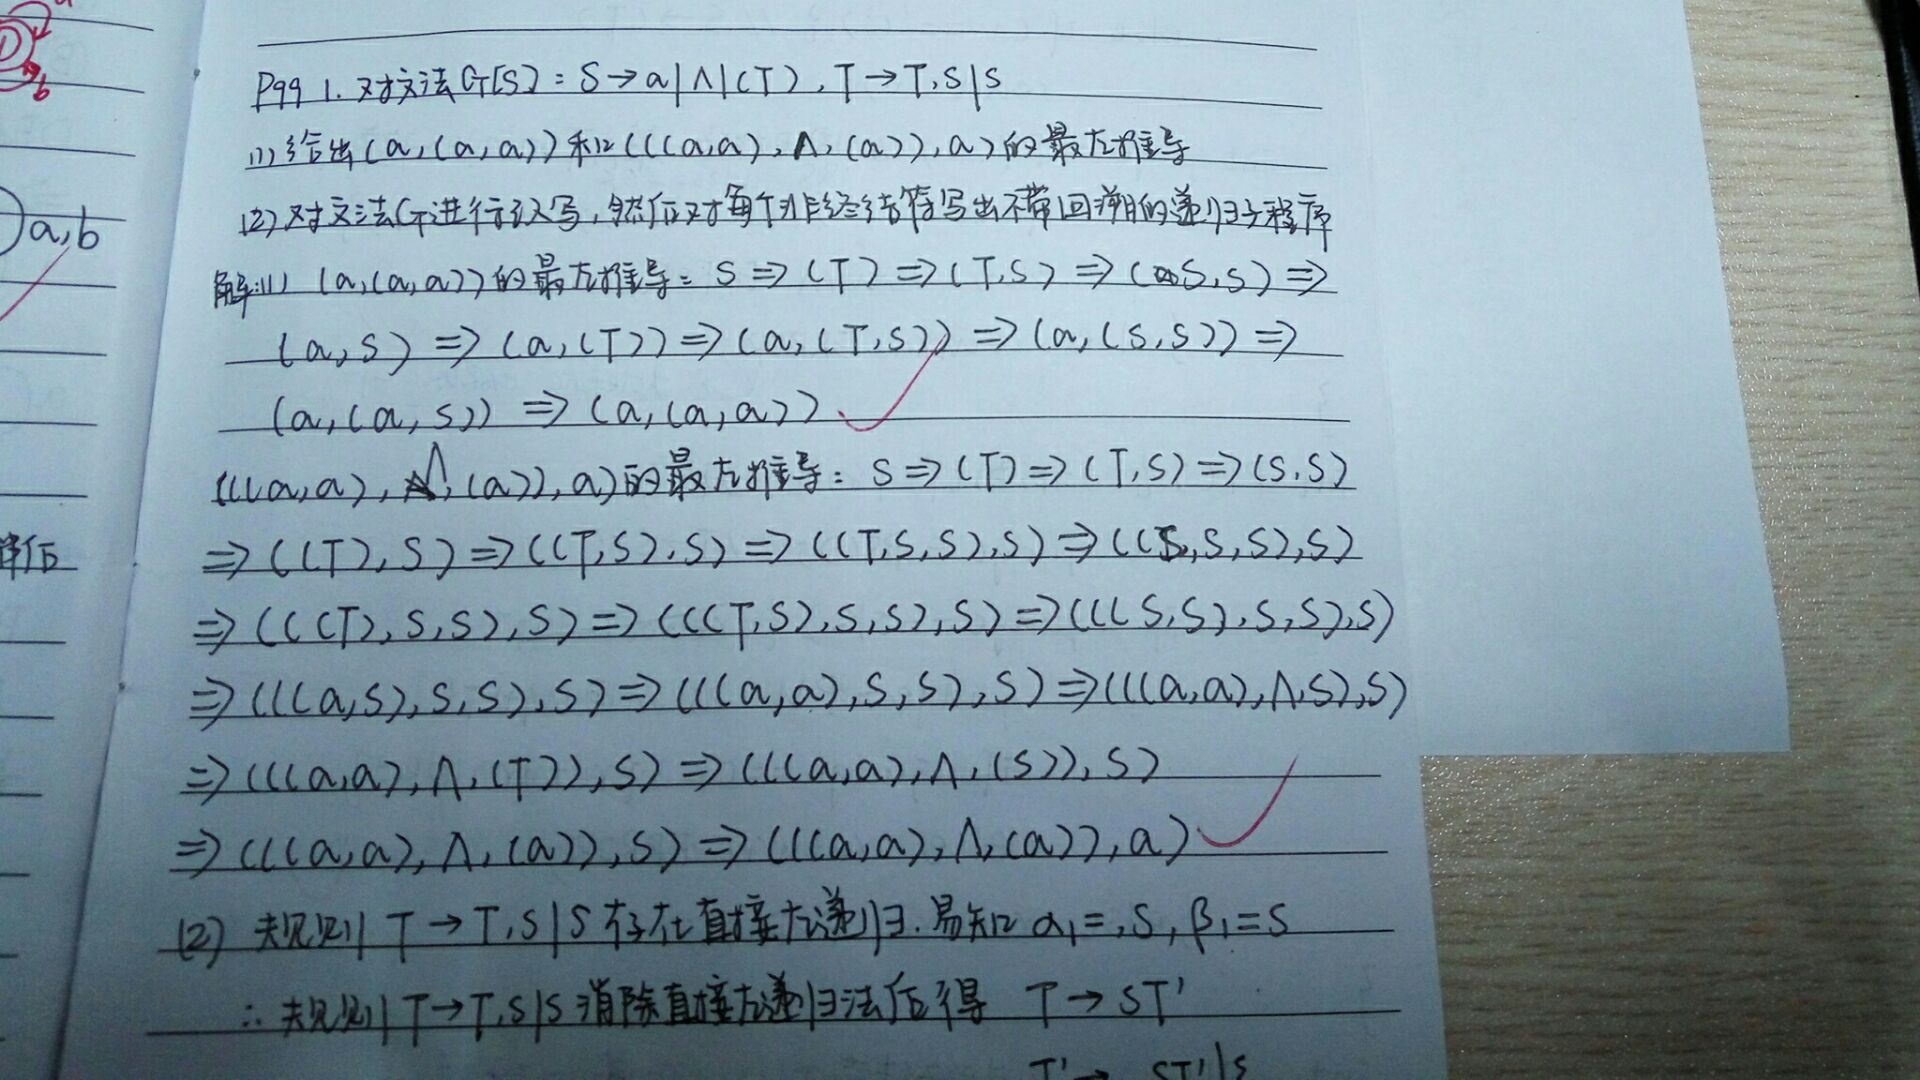 b
a,b
译后
P99 1. 对文法G[S]: S→a|Λ|(T), T→T,S|S
(1)给出(a,(a,a))和(((a,a),Λ,(a)),a)的最左推导
(2)对文法G进行改写,然后对每个非终结符写出不带回溯的递归子程序
解:(1) (a,(a,a))的最左推导: S⇒(T)⇒(T,S)⇒(S,S)⇒
(a,S)⇒(a,(T))⇒(a,(T,S))⇒(a,(S,S))⇒
(a,(a,S))⇒(a,(a,a))
(((a,a),Λ,(a)),a)的最左推导: S⇒(T)⇒(T,S)⇒(S,S)
⇒((T),S)⇒((T,S),S)⇒((T,S,S),S)⇒((S,S,S),S)
⇒(((T),S,S),S)⇒(((T,S),S,S),S)⇒(((S,S),S,S),S)
⇒(((a,S),S,S),S)⇒(((a,a),S,S),S)⇒(((a,a),Λ,S),S)
⇒(((a,a),Λ,(T)),S)⇒(((a,a),Λ,(S)),S)
⇒(((a,a),Λ,(a)),S)⇒(((a,a),Λ,(a)),a)
(2) 规则T→T,S|S存在直接左递归.易知α₁=,S,β₁=S
∴规则T→T,S|S消除直接左递归法后得 T→ST'
T'→ ST'|ε